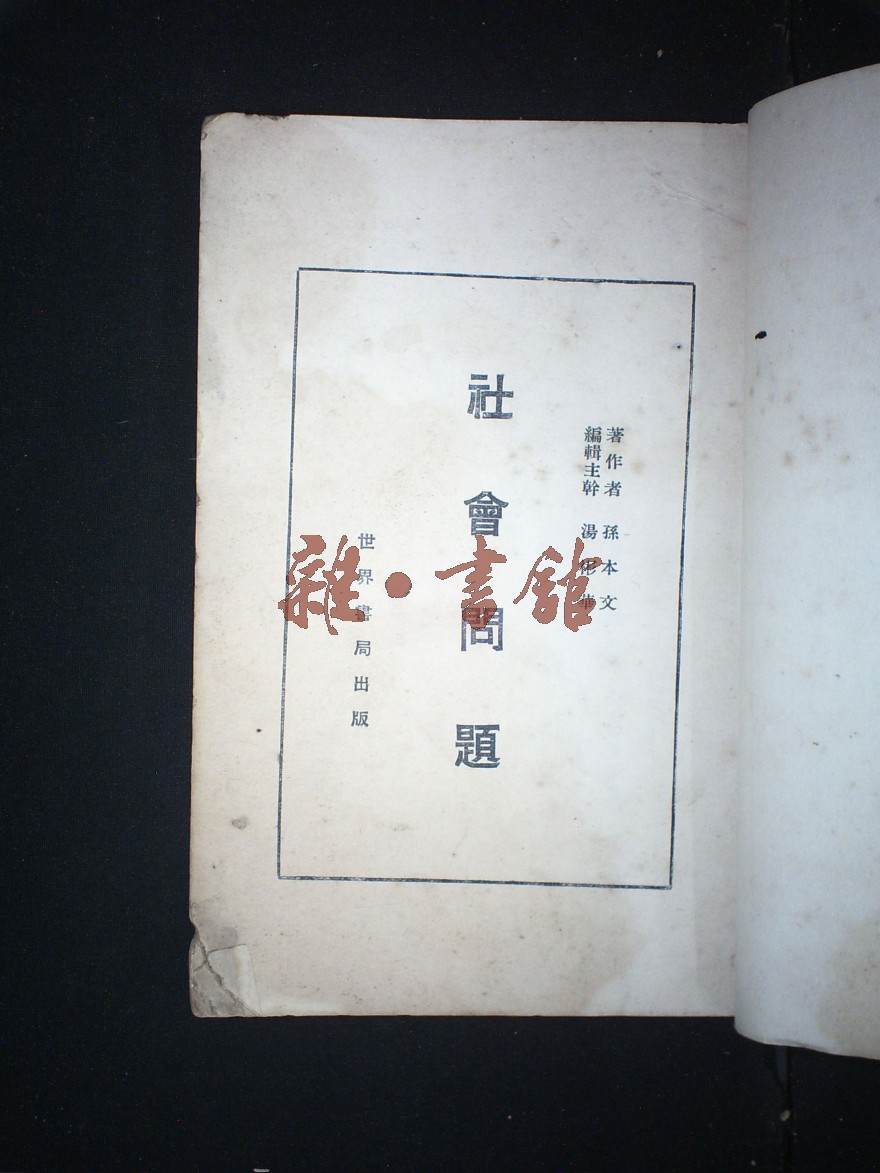 著作者 孫本文
編輯主幹 湯彬華
社會問題
世界書局出版
雜·書館